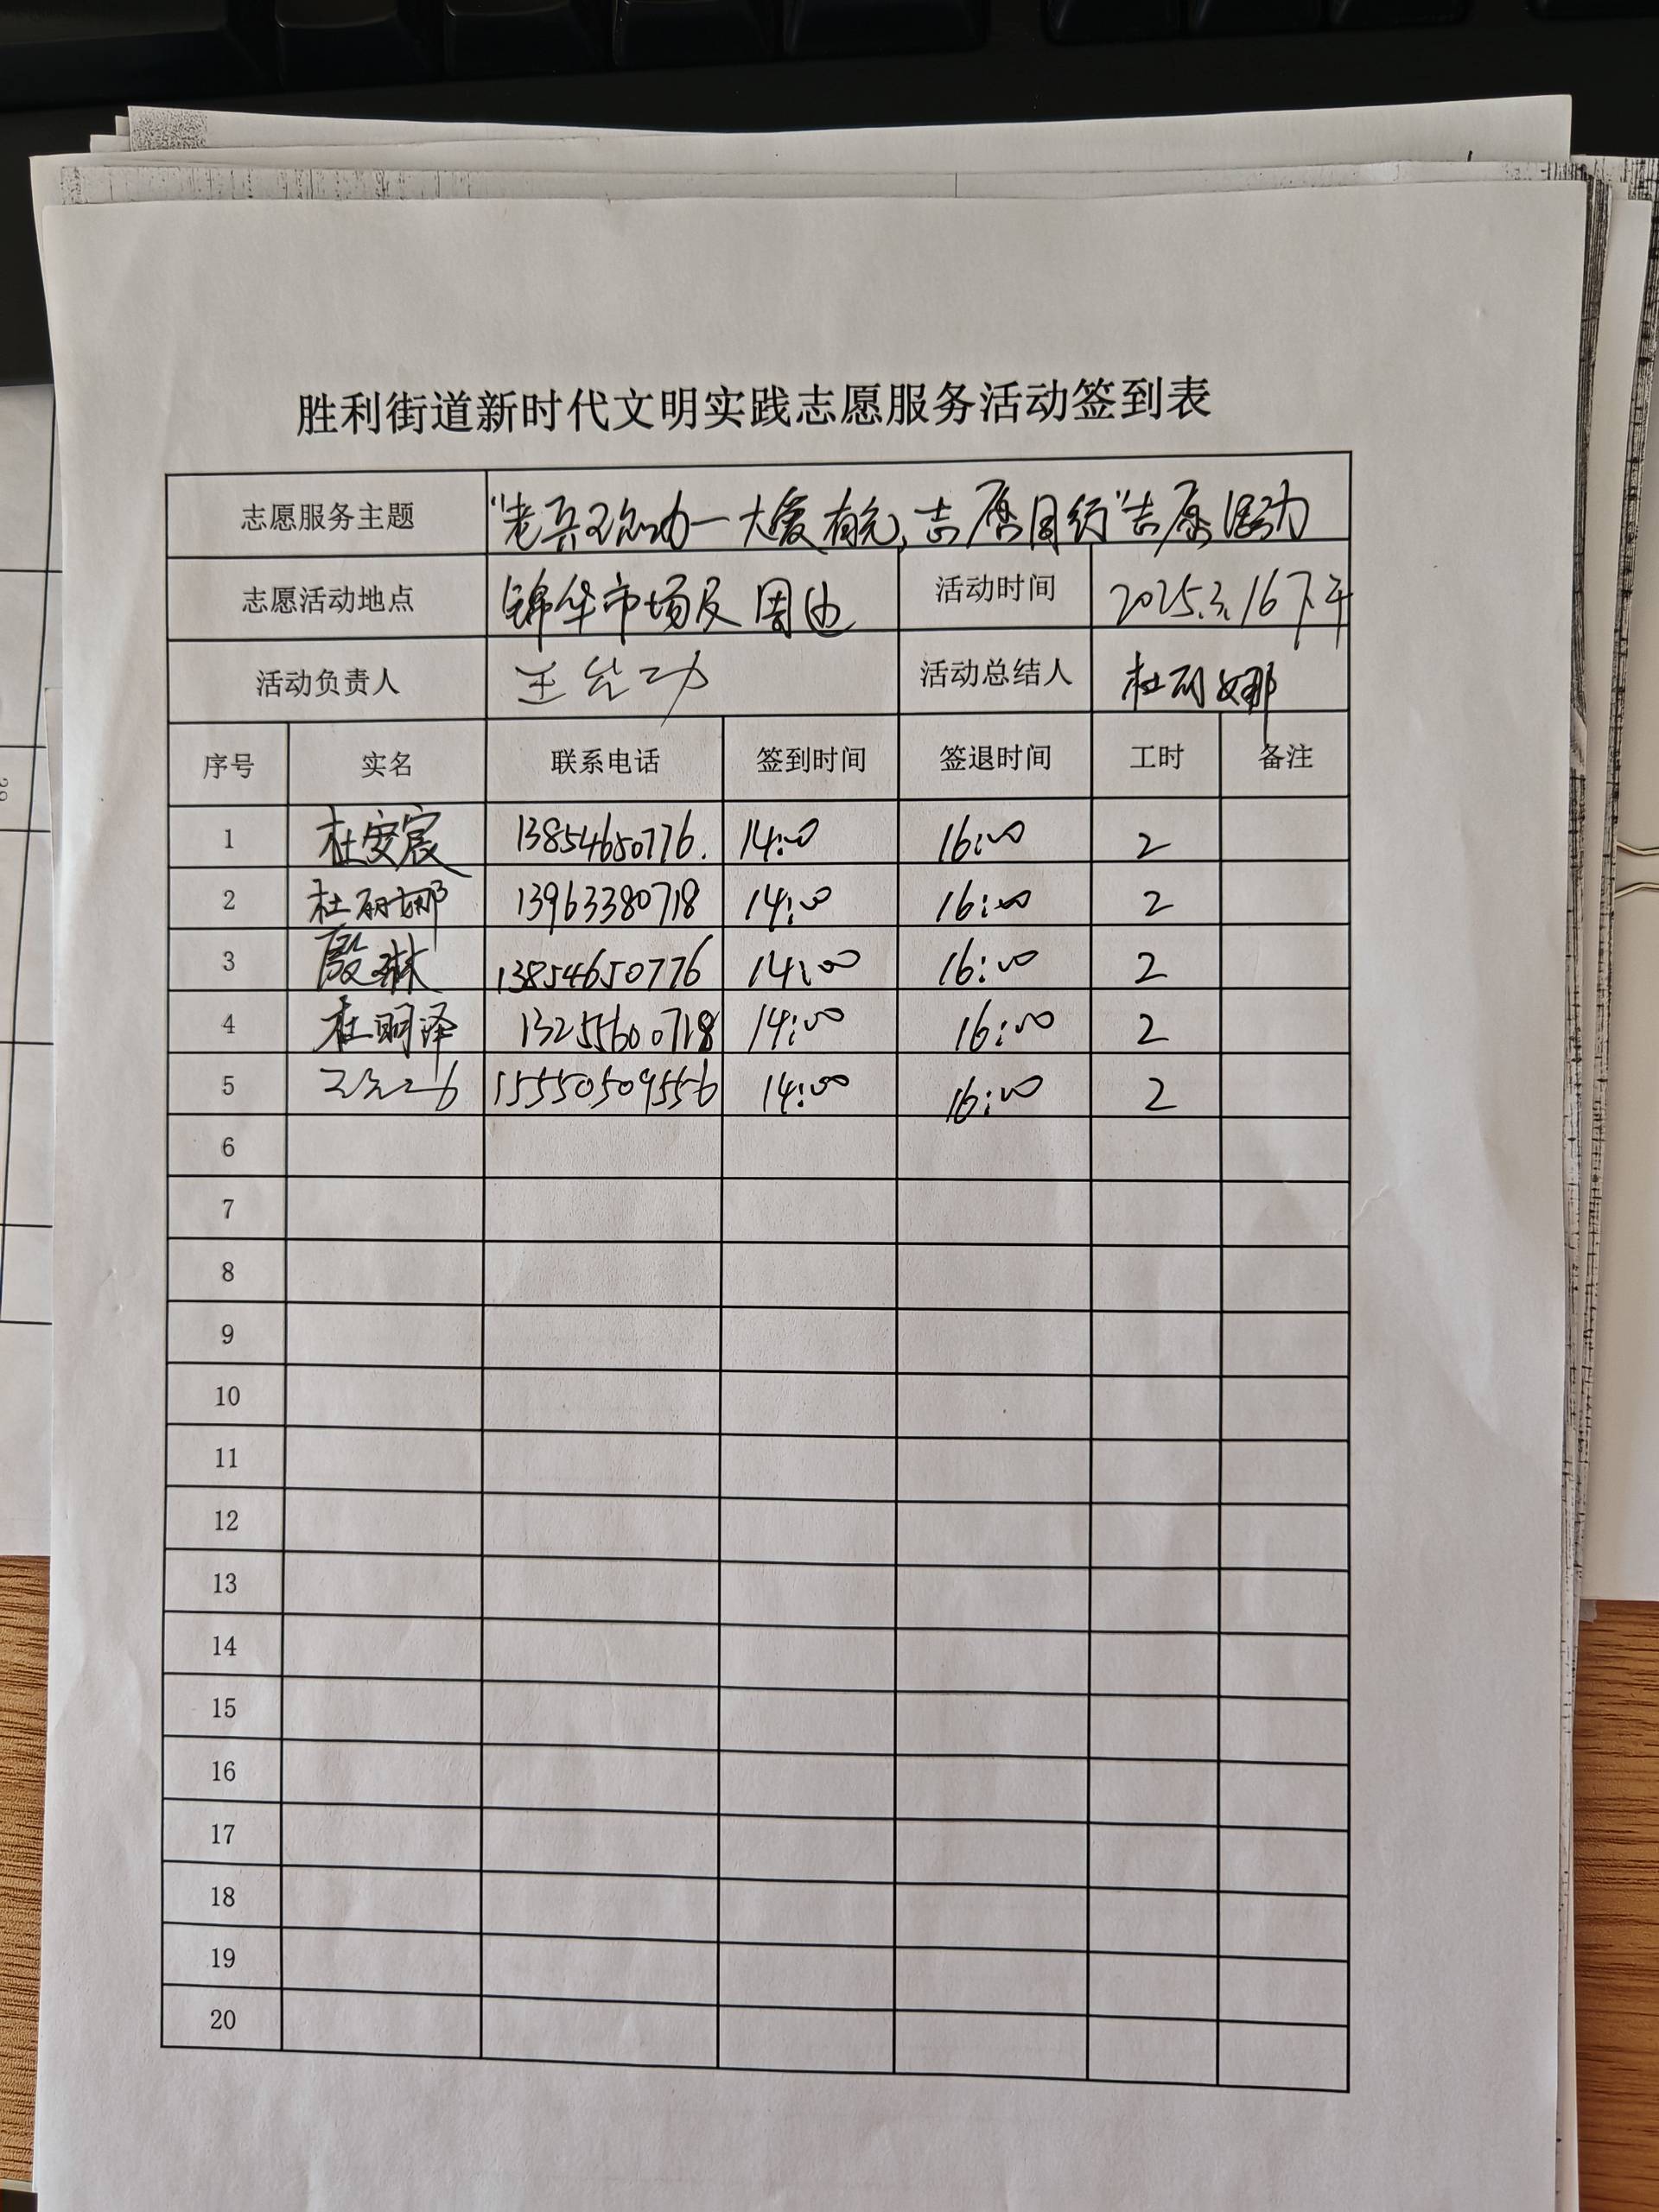 胜利街道新时代文明实践志愿服务活动签到表
志愿服务主题 "老兵 动—大爱有光,志愿同行"志愿活动
志愿活动地点 锦华市场及周边 活动时间 2025.3.16下午
活动负责人 王 功 活动总结人 杜丽娜
序号 实名 联系电话 签到时间 签退时间 工时 备注
1 杜安宸 13854650776. 14:00 16:00 2
2 杜丽娜 13963380718 14:00 16:00 2
3 殷琳 13854650776 14:00 16:00 2
4 杜明泽 13255600718 14:00 16:00 2
5 15550509556 14:00 16:00 2
6
7
8
9
10
11
12
13
14
15
16
17
18
19
20